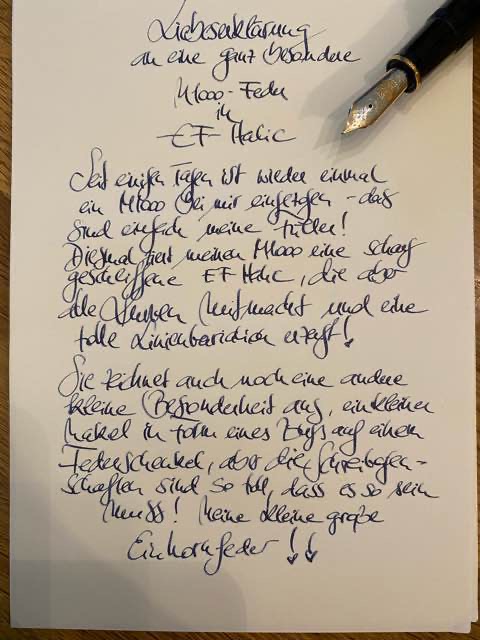 Liebeserklärung
an eine ganz besondere
M1000-Feder
in
EF Italic
Seit einigen Tagen ist wieder einmal
ein M1000 bei mir eingezogen - das
sind einfach meine Füller!
Diesmal ziert meinen M1000 eine scharf
geschliffene EF Italic, die aber
alle Kurven mitmacht und eine
tolle Linienvariation erzeugt!
Sie zeichnet auch noch eine andere
kleine Besonderheit aus, ein kleiner
Makel in Form eines auf einem
Federschenkel, aber die Schreibeigen-
schaften sind so toll, dass es so sein
muss! Meine kleine große
Einhornfeder !!